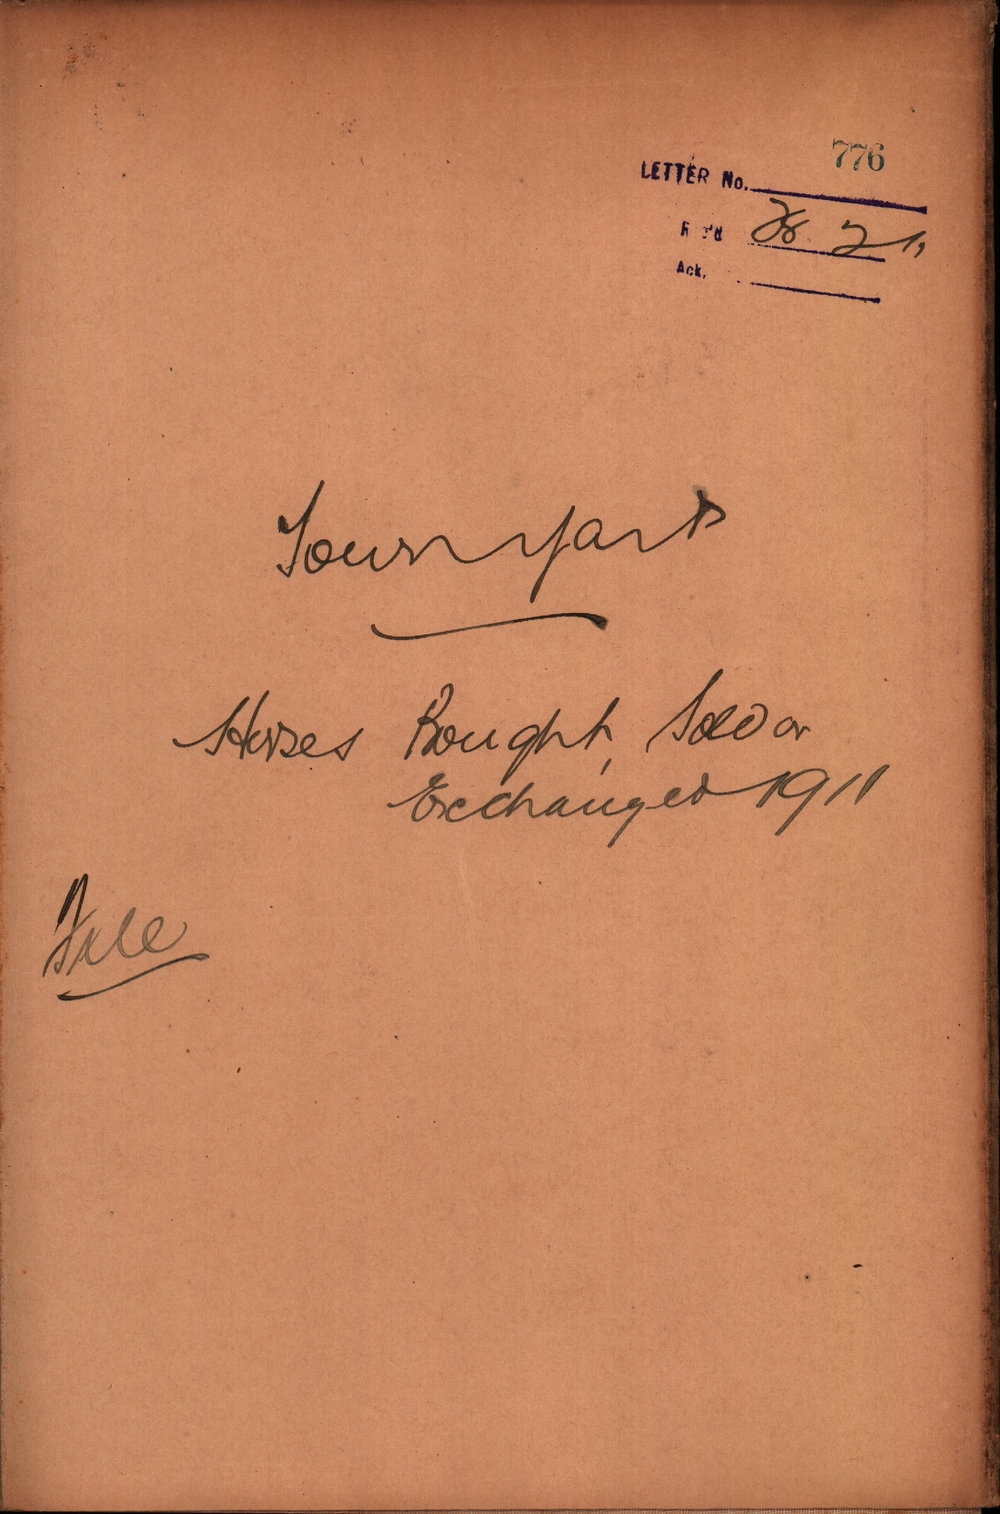 776
LETTER No.
R 'd 28 2 11
Ack.
Town Yard
Horses Bought, Sold or
Exchanged 1911
File